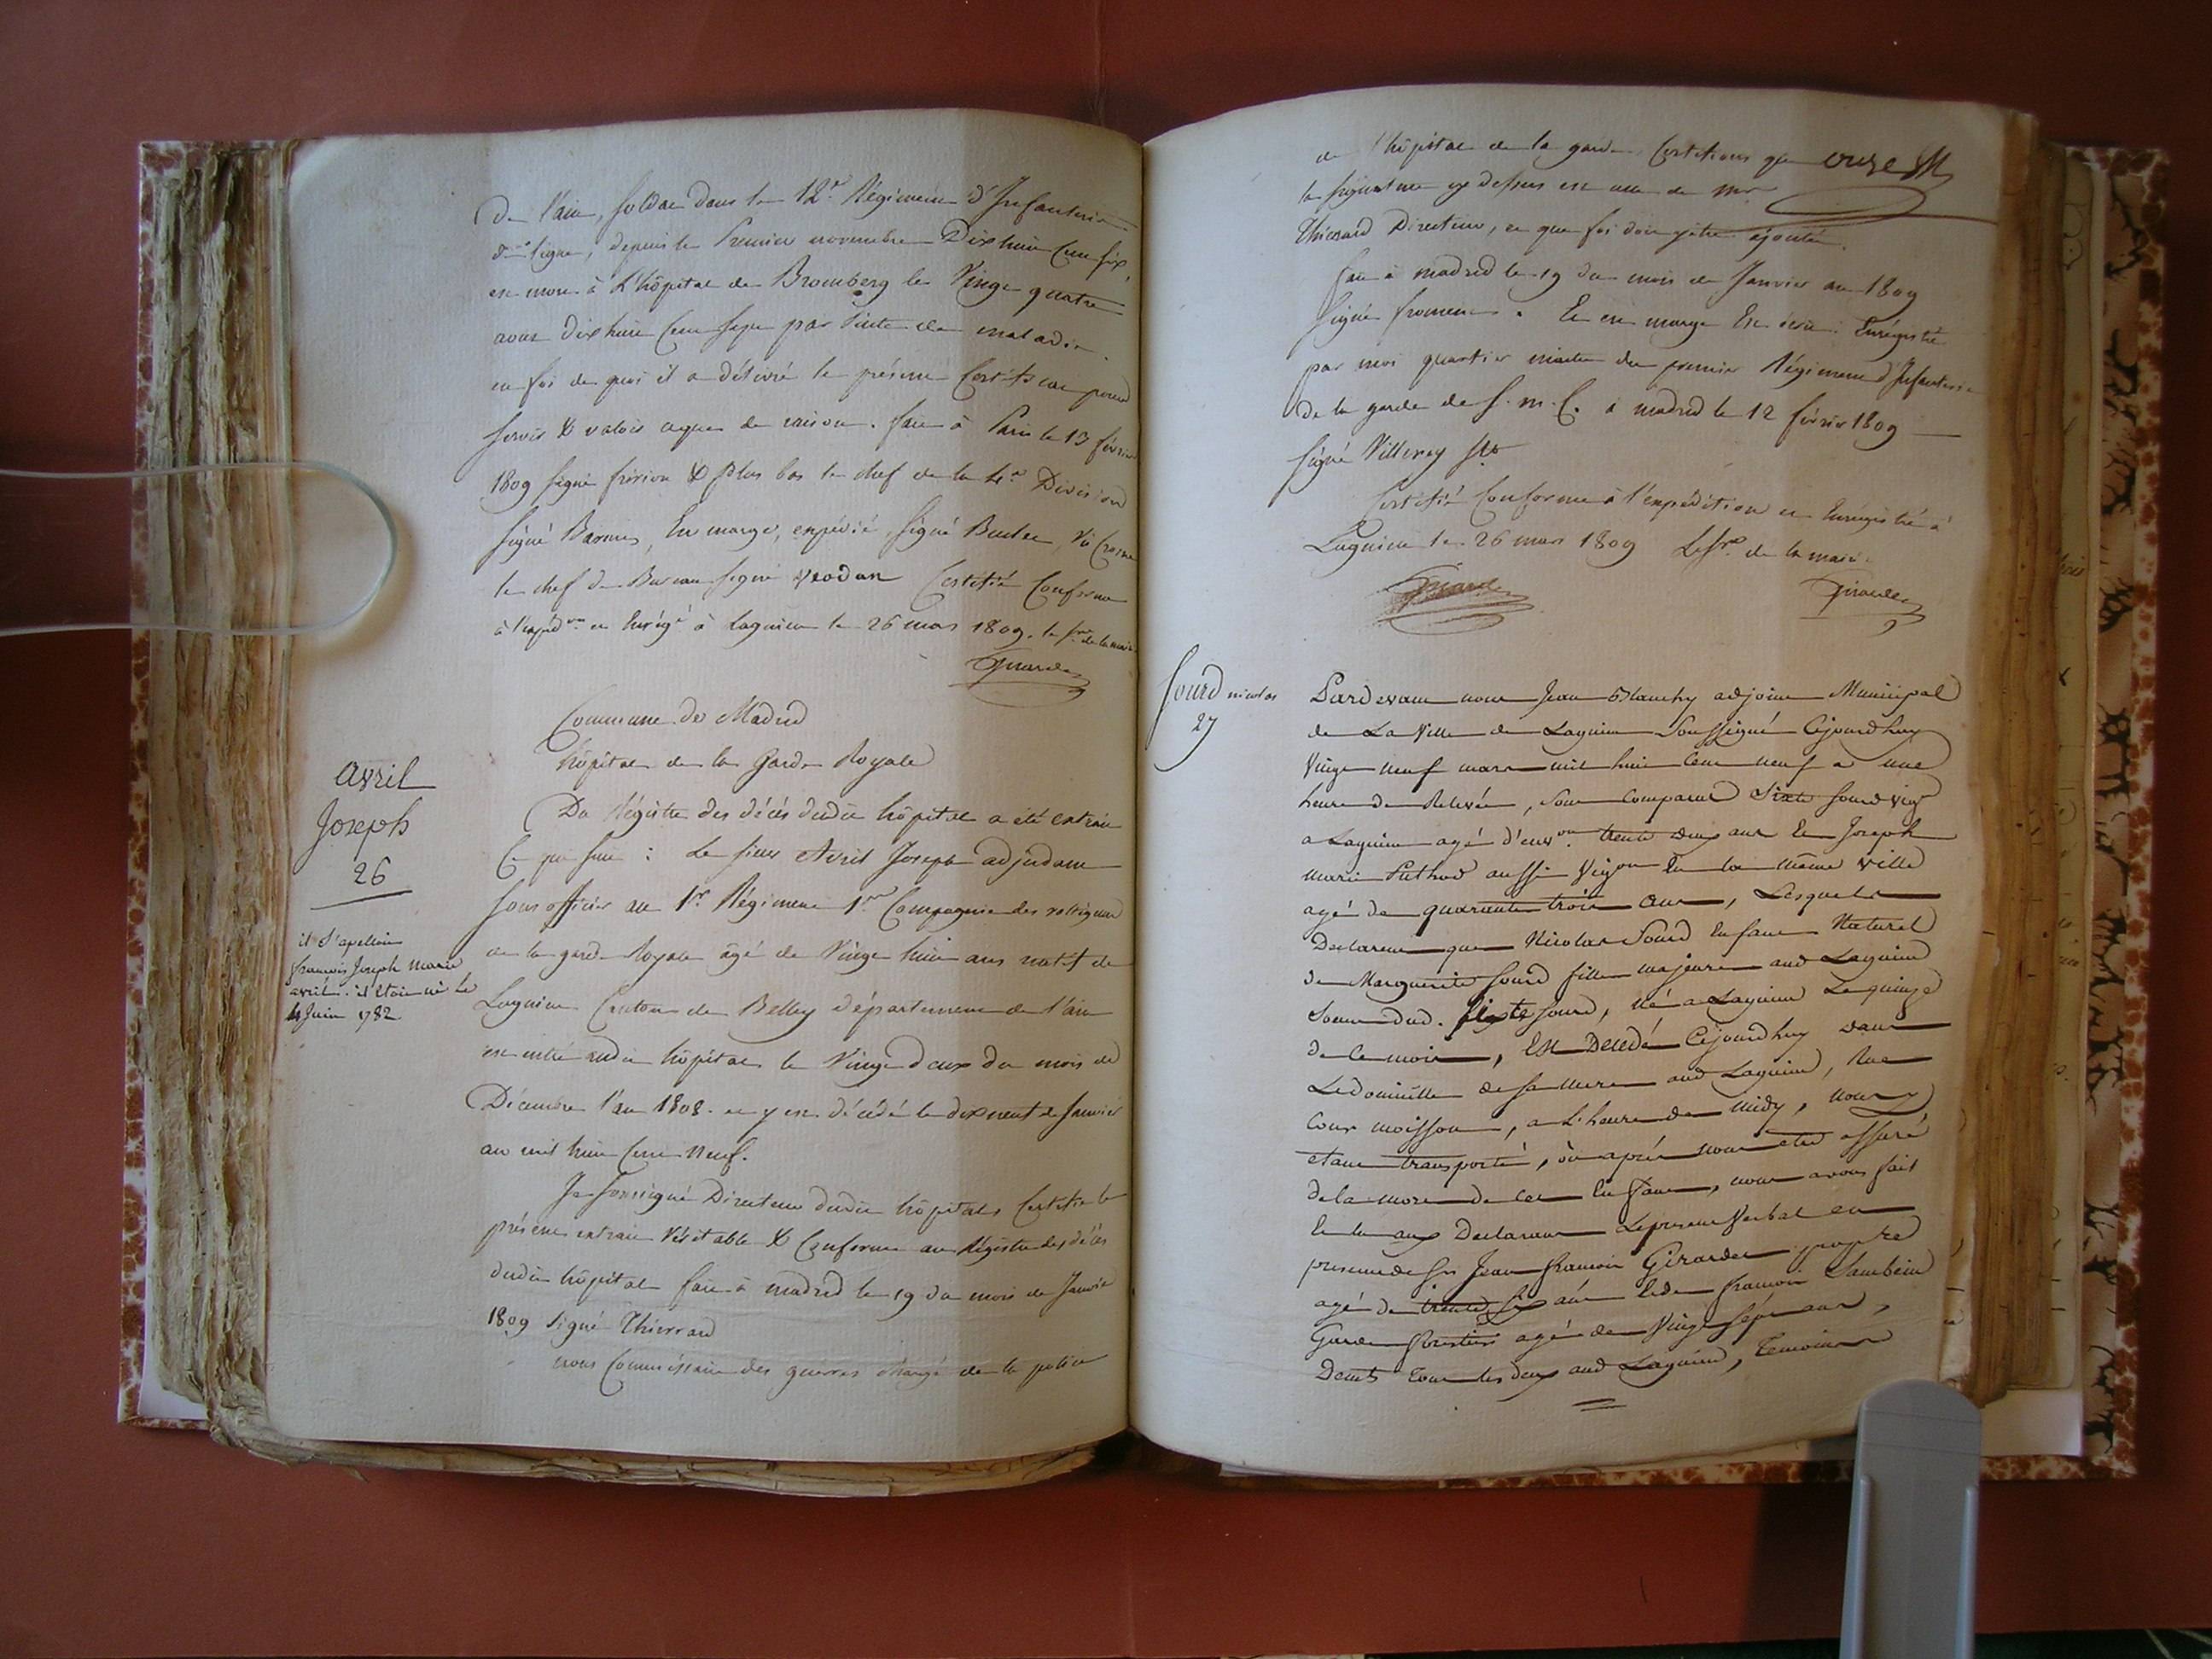 De l'ain, soldat dans le 12e Régiment d'Infanterie
de ligne, depuis le Premier novembre Dix huit Cent six,
est mort à L'hôpital de Bromberg le Vingt quatre
aout dix huit Cent sept par suite de maladie.
en foi de quoi il a délivré le présent Certificat pour
servir & valoir ce que de raison. fait à Paris le 13 février
1809 signé fririon & plus bas le chef de la 4e Division
signé Barnier, En marge, expédié, signé
le chef du Bureau signé Certifié Conforme
à l'expédon et Enrégé à Lagnieu le 26 mars 1809. le sre de la mairie
Girardet
Commune de Madrid
hôpital de la Garde Royale
avril
Joseph
26
il s'apelloit
françois Joseph Marie
avril. il étoit né le
4 Juin 1782.
Du Régistre des décès dudit hôpital a été extrait
Ce qui suit : Le sieur Avril Joseph adjudant
sous officier au 1r Régiment 1re Compagnie des voltigeurs
de la garde Royale âgé de Vingt huit ans natif de
Lagnieu Canton de Belley département de l'ain
est entré audit hôpital le Vingt deux du mois de
Décembre l'an 1808. et y est décédé le dix neuf de Janvier
an mil huit Cent Neuf.
Je soussigné Directeur dudit hôpital Certifie le
présent extrait Véritable & Conforme au Régistre des décès
dudit hôpital fait à madrid le 19 du mois de Janvier
1809 signé Thierrard
nous Commissaire des guerres chargé de la police
onze
de l'hôpital de la garde Certifions que
la signature cy dessus est celle de mr
Thierrard Directeur, et que foi doit y être ajoutée.
fait à madrid le 19 du mois de Janvier an 1809
signé froment. Et en marge Est écrit: Enrégistré
par moi quartier maitre du premier Régiment d'Infanterie
de la garde de S. M. C. à madrid le 12 février 1809
signé Villerey
Certifié Conforme à l'expédition et Enrégistré à
Lagnieu le 26 mars 1809 Le sre de la mairie
Girardet Girardet
sourd nicolas
27
Pardevant nous Jean Blanchy adjoint Municipal
de La Ville de Lagnieu Soussigné Cejourdhuy
Vingt neuf mars mil huit Cent neuf a une
heure de Relevée, sont Comparus Sixte sourd vigon
a Lagnieu agé d'envon trente deux ans Et Joseph
marie Puthod aussi Vigon En la même ville
agé de quarante trois ans, Lesquels
Declarent que Nicolas Sourd Enfant Naturel
de Marguerite sourd fille majeure aud Lagnieu
Soeur dud. sixte sourd, né a Lagnieu Le quinze
de Ce mois, Est Decedé Cejourdhuy dans
Le domicille de sa Mere aud Lagnieu, Rue
Cour moisson, a L'heure de midy, nous y
etant transporté, où après nous etre assuré
de la mort de Cet Enfant, nous avons fait
En la aux Declarant Le present Verbal en
presence de srs Jean francois Girardet propre
agé de trente six ans Et de francois Lambert
Garde forestier agé de Vingt sept ans,
Demts tous les deux aud Lagnieu, Temoins